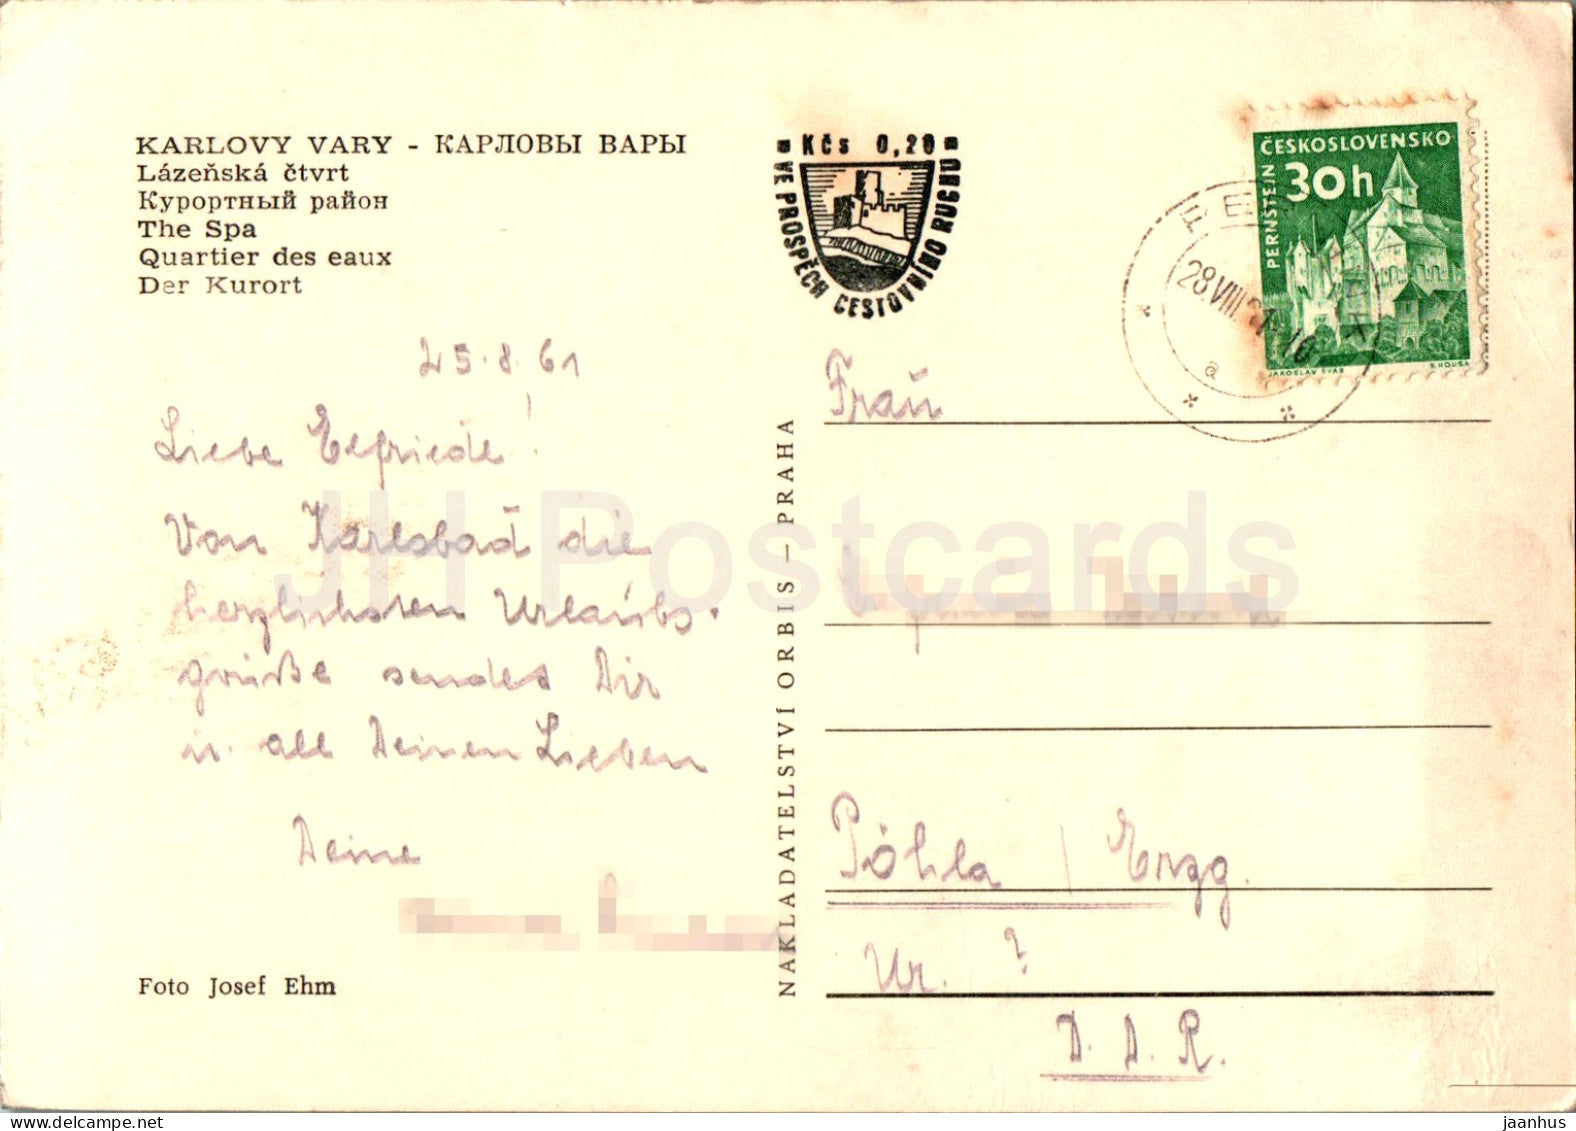 KARLOVY VARY - КАРЛОВЫ ВАРЫ
Lázeňská čtvrt
Курортный район
The Spa
Quartier des eaux
Der Kurort
25.8.61
Liebe Elfriede!
Von Karlsbad die
herzlichsten Urlaubs-
grüße sendet Dir
u. all Deinen Lieben
Deine
Foto Josef Ehm
NAKLADATELSTVÍ ORBIS – PRAHA
Kčs 0,20
VE PROSPĚCH CESTOVNÍHO RUCHU
ČESKOSLOVENSKO
30h
PERNŠTEJN
JAROSLAV ŠVÁB
28 VIII
a
Frau
Pöhla / Erzg.
Nr. ?
D. D. R.
JH Postcards
delcampe.net
jaanhus